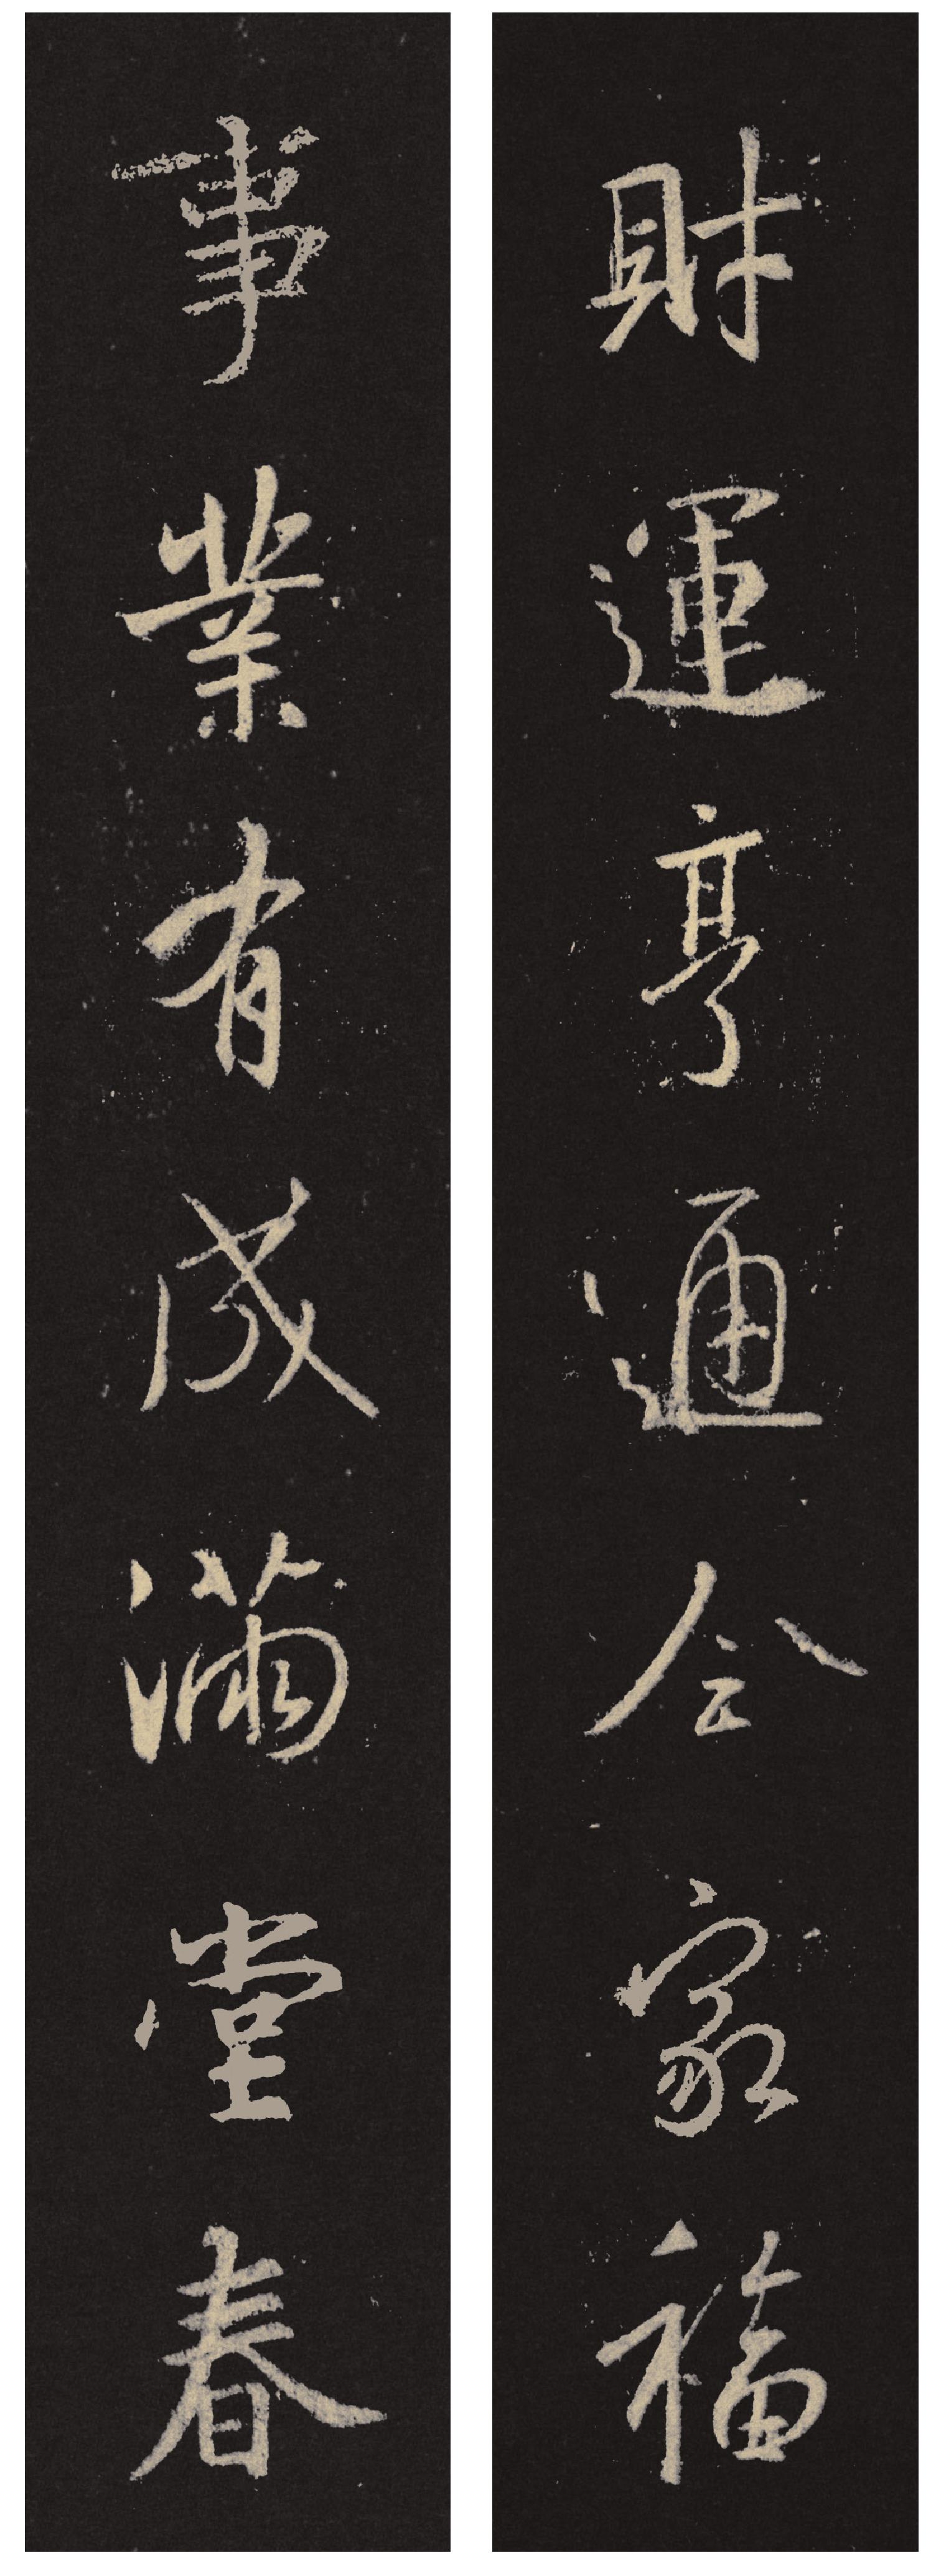 財運亨通合家福
事業有成滿堂春